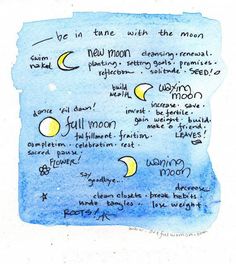 be in tune with the moon
swim naked
new moon
cleansing · renewal
planting · setting goals · promises
reflection · solitude · SEED!
build wealth
waxing moon
increase · save
invest · be fertile
gain weight · build
make a friend
LEAVES!
dance 'til dawn!
full moon
fulfillment · fruition
completion · celebration · rest
sacred pause
FLOWER!
waning moon
say goodbye...
decrease
clean closets · break habits
undo tangles · lose weight
ROOTS!